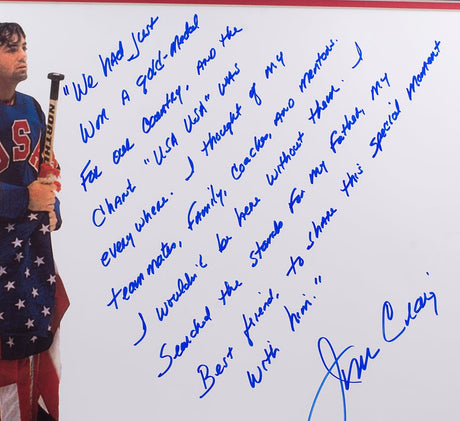 "We had just
won a gold-medal
For our country, and the
Chant "USA USA" was
everywhere. I thought of my
teammates, Family, Coaches, and mentors.
I wouldn't be here without them. I
Searched the stands for my Father, my
Best friend, to share this special moment
with him."
Jim Craig
USA
NORTH